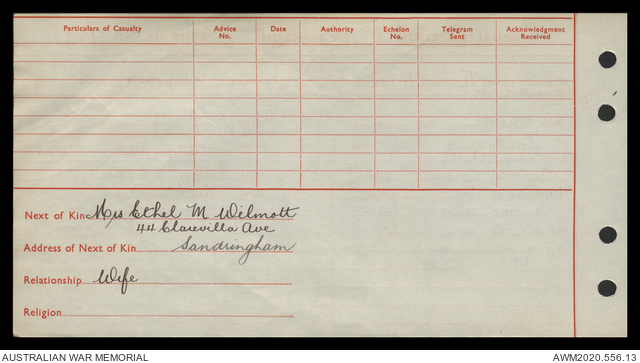 Particulars of Casualty Advice No. Date Authority Echelon No. Telegram Sent Acknowledgment Received
Next of Kin Mrs Ethel M Wilmott
44 Clarevilla Ave
Address of Next of Kin Sandringham
Relationship Wife
Religion
AUSTRALIAN WAR MEMORIAL AWM2020.556.13